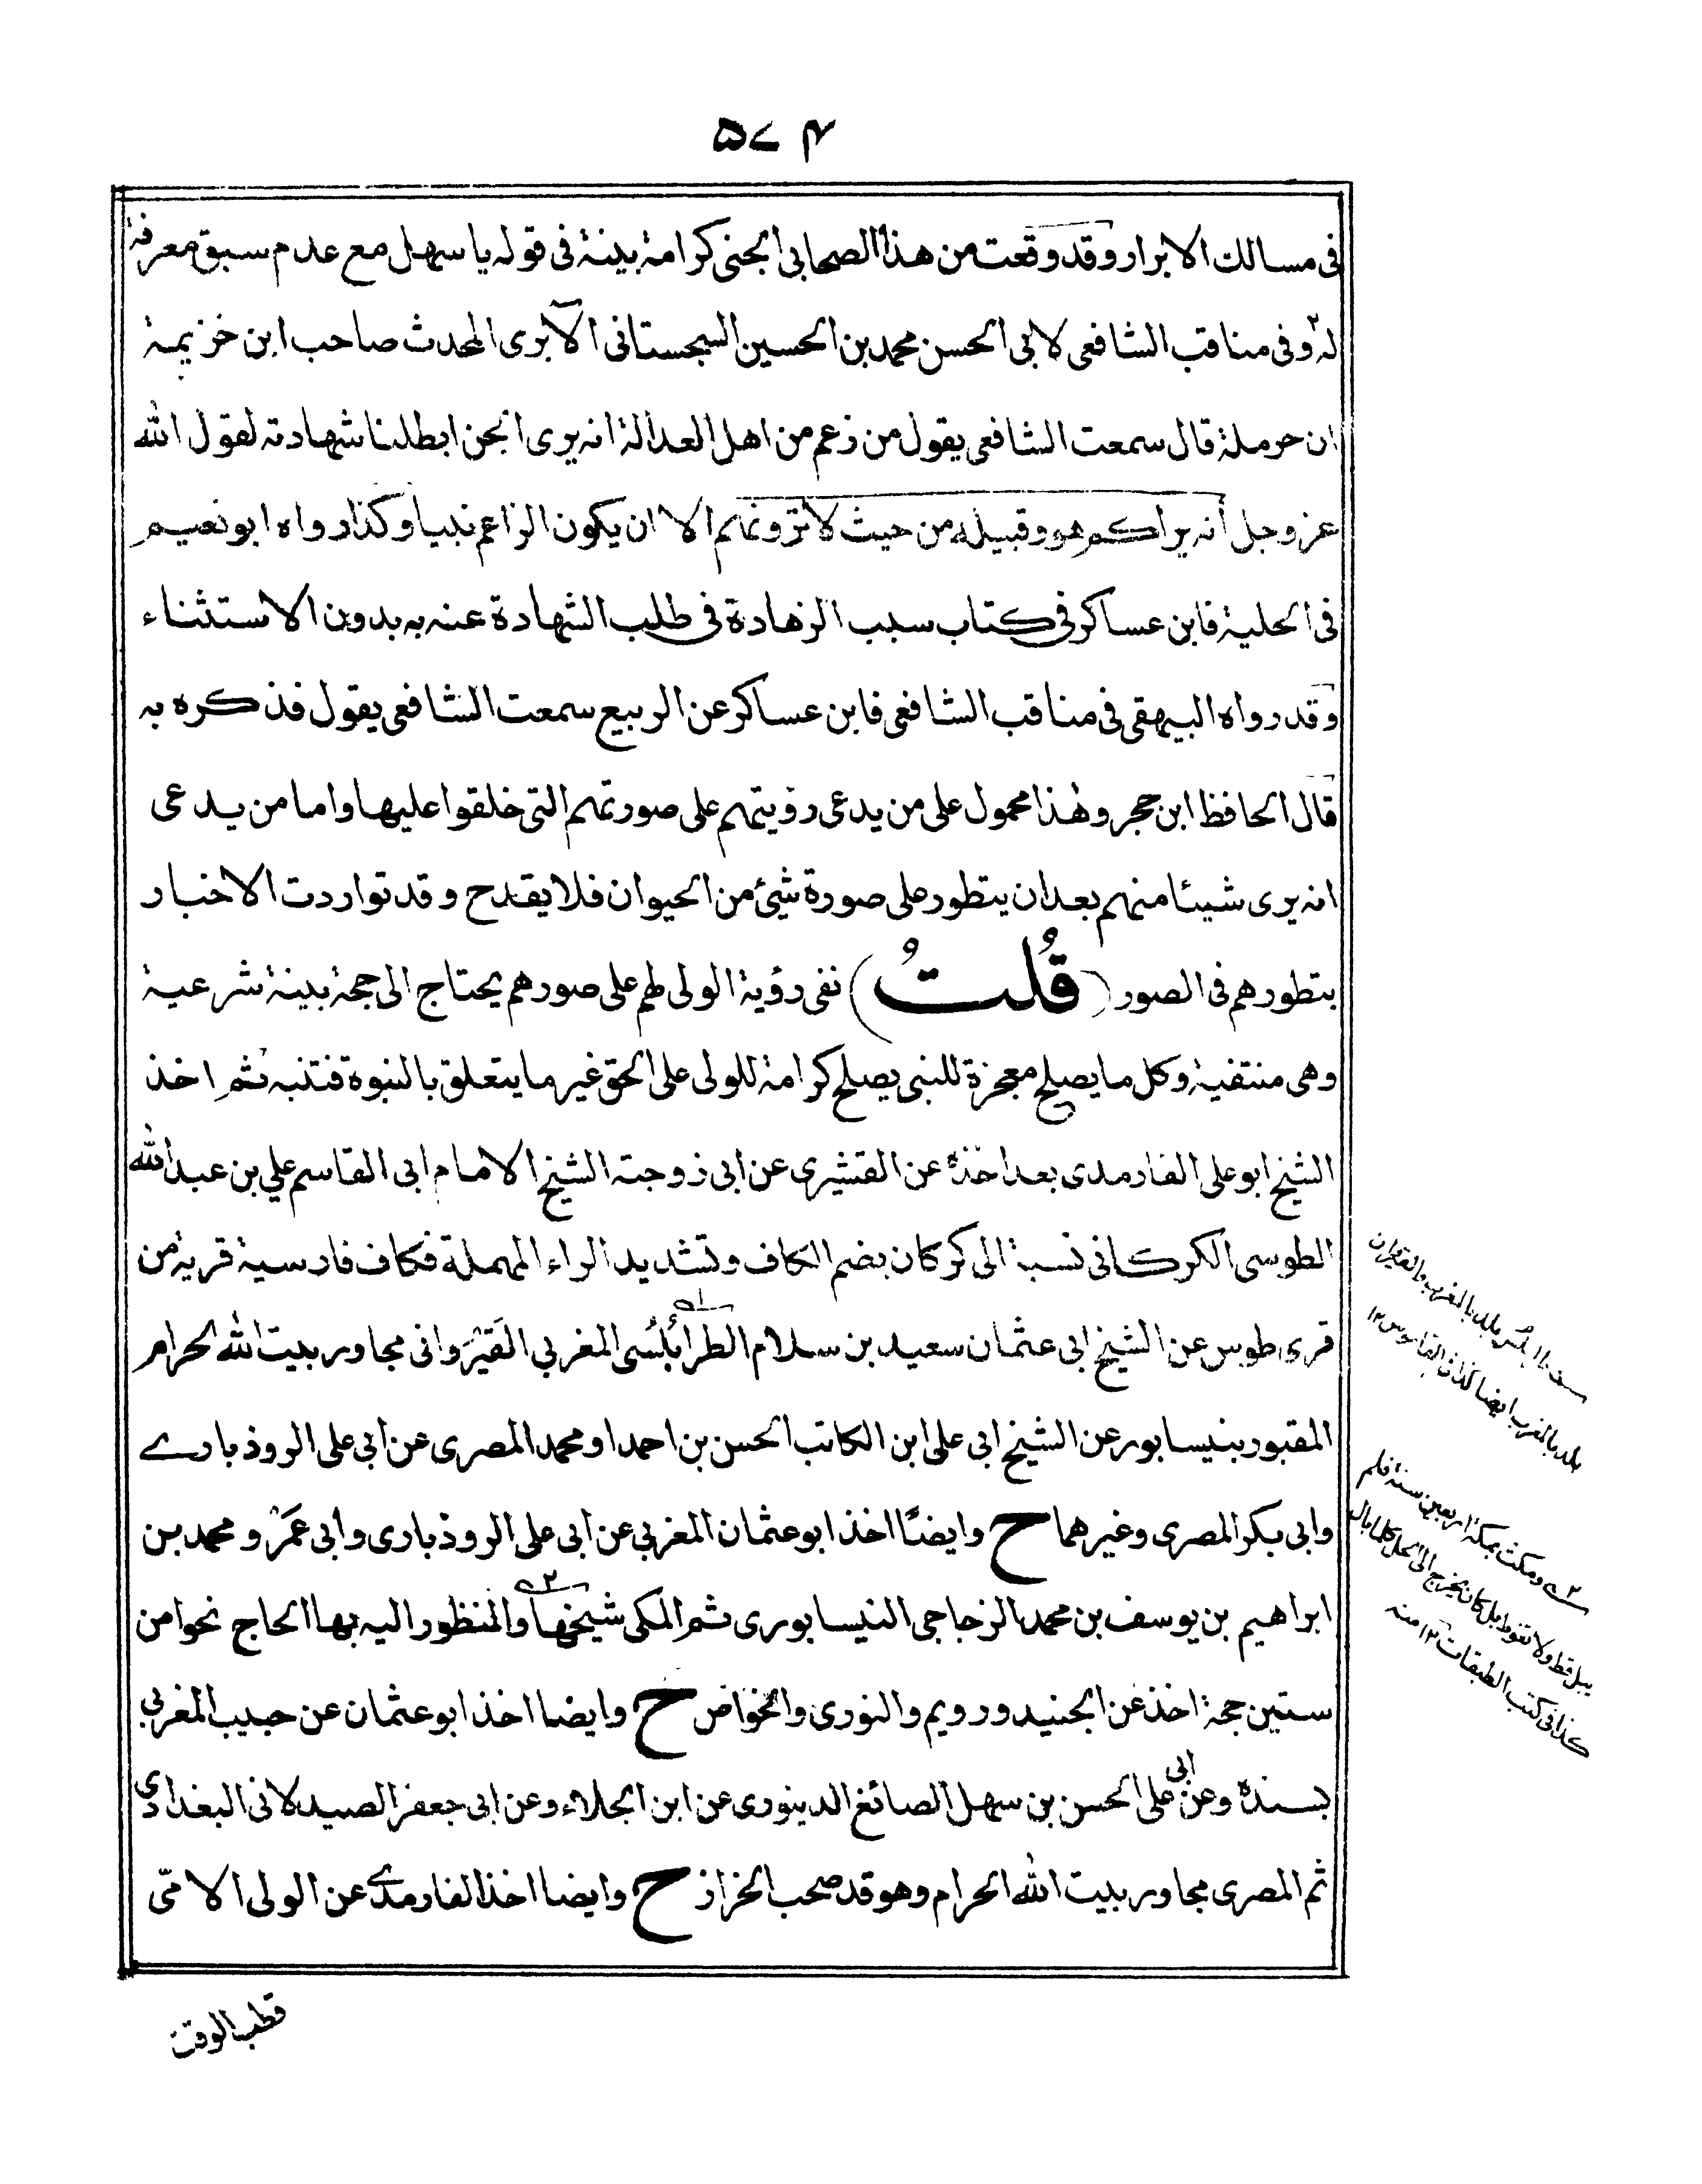 ۵۷۴
فى مسالك الابرار وقد وقعت من هذا الصحابى الجنى كرامة بينة فى قوله يا سهل مع عدم سبق معرفة
له وفى مناقب الشافعى لابى الحسن محمد بن الحسين السجستانى الآبرى المحدث صاحب ابن خزيمة
ان حرملة قال سمعت الشافعى يقول من زعم من اهل العدالة انه يرى الجن ابطلنا شهادته لقول الله
عز وجل أنه يراكم هو وقبيله من حيث لا ترونهم الا ان يكون الزاعم نبيا وكذا رواه ابو نعيم
فى الحلية فابن عساكر فى كتاب سبب الزهادة فى طلب الشهادة عنه به بدون الاستثناء
وقد رواه البيهقى فى مناقب الشافعى فابن عساكر عن الربيع سمعت الشافعى يقول فذكره به
قال الحافظ ابن حجر وهذا محمول على من يدعى رؤيتهم على صورتهم التى خلقوا عليها واما من يدعى
انه يرى شيئا منهم بعد ان يتطور على صورة شئ من الحيوان فلا يقدح وقد تواردت الاخبار
بتطورهم فى الصور (قُلتُ) نفى رؤية الولى لهم على صورهم يحتاج الى حجة بينة شرعية
وهى منتفية وكل ما يصلح معجزة للنبى يصلح كرامة للولى على الحق غير ما يتعلق بالنبوة فتنبه ثم اخذ
الشيخ ابو على الفارمدى بعد اخذه عن القشيرى عن ابى زوجته الشيخ الامام ابى القاسم على بن عبد الله
الطوسى الكركانى نسبة الى كركان بضم الكاف وتشديد الراء المهملة فكاف فارسية قرية من
قرى طوس عن الشيخ ابى عثمان سعيد بن سلام الطرابُلُسى المغربي القَيْرَوانى مجاور بيت الله الحرام
المقبور بنيسابور عن الشيخ ابى على ابن الكاتب الحسن بن احمد او محمد المصرى عن ابى على الروذبارے
وابى بكر المصرى وغيرهما ح وايضًا اخذ ابو عثمان المغربي عن ابى على الروذبارى وأبى عَمْرو محمد بن
ابراهيم بن يوسف بن محمد الزجاجى النيسابورى ثم المكى شيخها والمنظور اليه بها الحاج نحوا من
ستين حجة اخذ عن الجنيد ورويم والنورى والخواص ح وايضا اخذ ابو عثمان عن حبيب المغربي
بسنده وعن ابى على الحسن بن سهل الصائغ الدينورى عن ابن الجلاء وعن ابى جعفر الصيدلانى البغدادى
ثم المصرى مجاور بيت الله الحرام وهو قد صحب الخزاز ح وايضا اخذ الفارمدے عن الولى الامّى
قطب الوقت
بلد بالمغرب والقيروان
بلد بالمغرب ايضا كذا فى القاموس ١٢
٢ ومكث بمكة اربعين سنة فلم
يبل قط ولا تغوط بل كان يخرج الى الحل كلما بال
كذا فى كتب الطبقات ١٢ منه